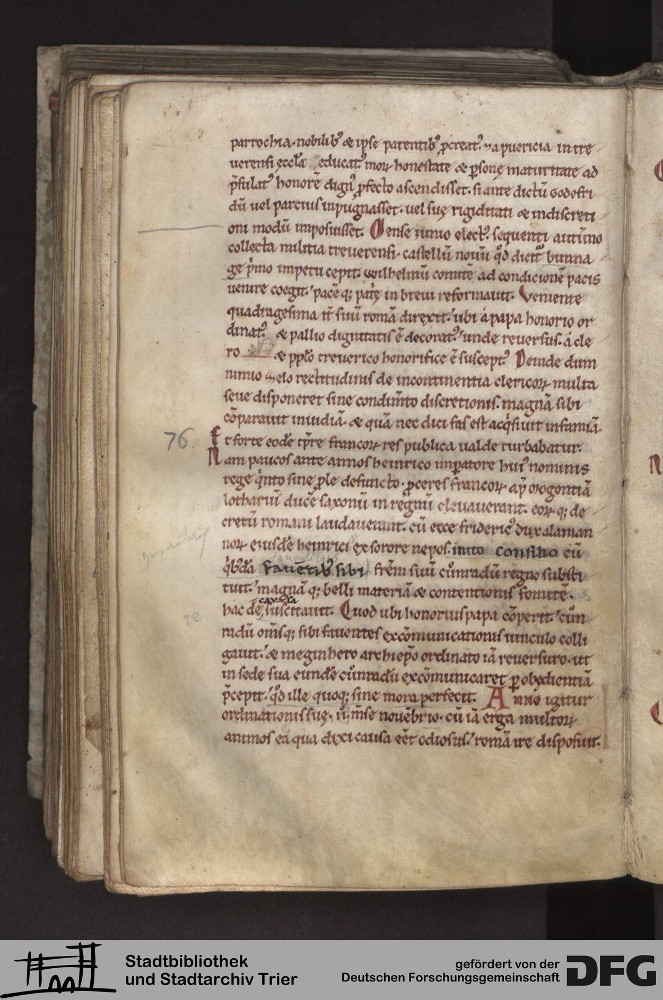 parrochia. nobilib᷒ & ipse parentib᷒ p̄creat᷒. & a puericia in tre
uerensi eccl̄a educat᷒ morꝝ honestate & ꝑsonę maturitate ad
p̄sulat᷒ honorē dign᷒ ꝓfecto ascendisset. si ante dictū Godefri
dū uel parcius inpugnasset. uel suę rigiditati & indiscreti
oni modū imposuisset. Mense iunio elect᷒. sequenti autūno
collecta militia treuerensi. castellū nouū qd̄ dicit᷒ bunna
ge p̄mo impetu cepit. Wilhelmū comitē ad condicionē pacis
uenire coegit. pacē q; pat̄e in breui reformauit. Veniente
quadragesima it̄ suū romā direxit. ubi a papa honorio or
dinat᷒. & pallio dignitatis ē decorat᷒. unde reuersus. a cle
ro & pp̄lo treuerico honorifice ē suscept᷒. Deinde dum
nimio zelo rectitudinis de incontinentia clericorꝝ multa
seue disponeret sine condim̄to discretionis. magnā sibi
cōparauit inuidiā. & quā nec dici fas est acq̄siuit infamiā
76. Et forte eodē tp̄re francorꝝ res publica ualde turbabatur.
Nam paucos ante annos heinrico imꝑatore hui᷒ nominis
rege q̄nto sine ꝓle defuncto. ꝓceres francorꝝ ap̄ mogontiā
lotharium ducē saxonū in regnū eleuauerant. eorꝝ q; de
cretū romani laudauerant. cū ecce frideric᷒ dux alaman
norꝝ eiusdē heinrici ex sorore nepos. inito consilio cū
q̄b᷒dā fauentib᷒ sibi frēm suū cūnradū regno substi
tuit. magnā q; belli materiā & contentionis fomitē
hac de causa suscitauit. Quod ubi honorius papa cōperit. cūn
radū om̄sq; sibi fauentes excōmunicationis uinculo colli
gauit. & meginhero archiepō ordinato iā reuersuro. ut
in sede sua eundē cūnradū excōmunicaret ꝑ obędientiā
p̄cepit. qd̄ ille quoq; sine mora perfecit. Anno igitur
ordinationis suę. ii. m̄se nouēbrio. cū iā erga multorꝝ
animos ea qua dixi causa eēt odiosus. romā ire disposuit.
Stadtbibliothek
und Stadtarchiv Trier
gefördert von der
Deutschen Forschungsgemeinschaft
DFG